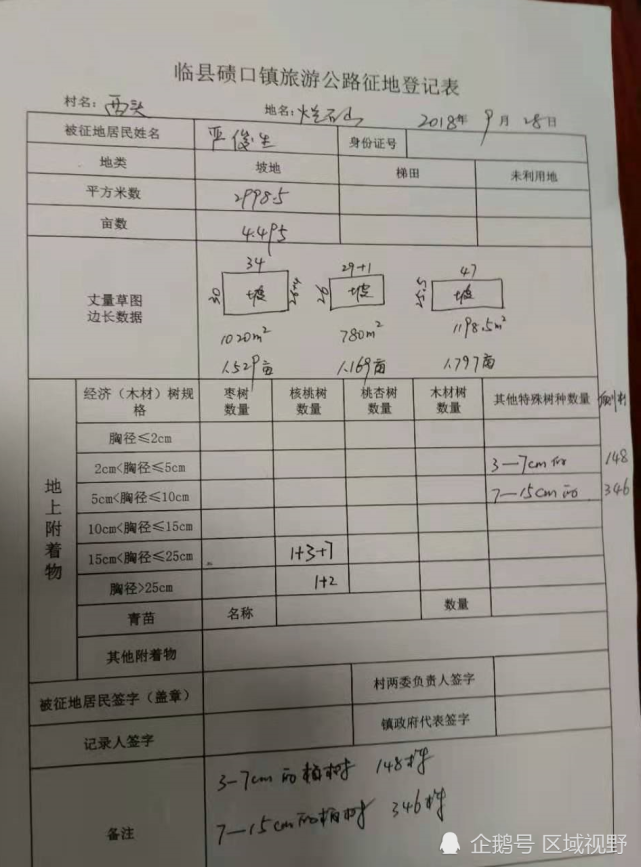 临县碛口镇旅游公路征地登记表
村名：西头 地名： 2018年 9月 28日
被征地居民姓名 严俊生 身份证号
地类 坡地 梯田 未利用地
平方米数 2998.5
亩数 4.495
丈量草图
边长数据
34 29+1 47
30 坡 26 坡 25.5 坡
1020m² 780m² 1198.5m²
1.529亩 1.169亩 1.797亩
地上附着物
经济（木材）树规格 枣树数量 核桃树数量 桃杏树数量 木材树数量 其他特殊树种数量
胸径≤2cm
2cm<胸径≤5cm 3—7cm的 148
5cm<胸径≤10cm 7—15cm的 346
10cm<胸径≤15cm
15cm<胸径≤25cm 1+3+7
胸径>25cm 1+2
青苗 名称 数量
其他附着物
被征地居民签字（盖章） 村两委负责人签字
记录人签字 镇政府代表签字
备注
3-7cm的柏树 148株
7—15cm的柏树 346株
企鹅号 区域视野